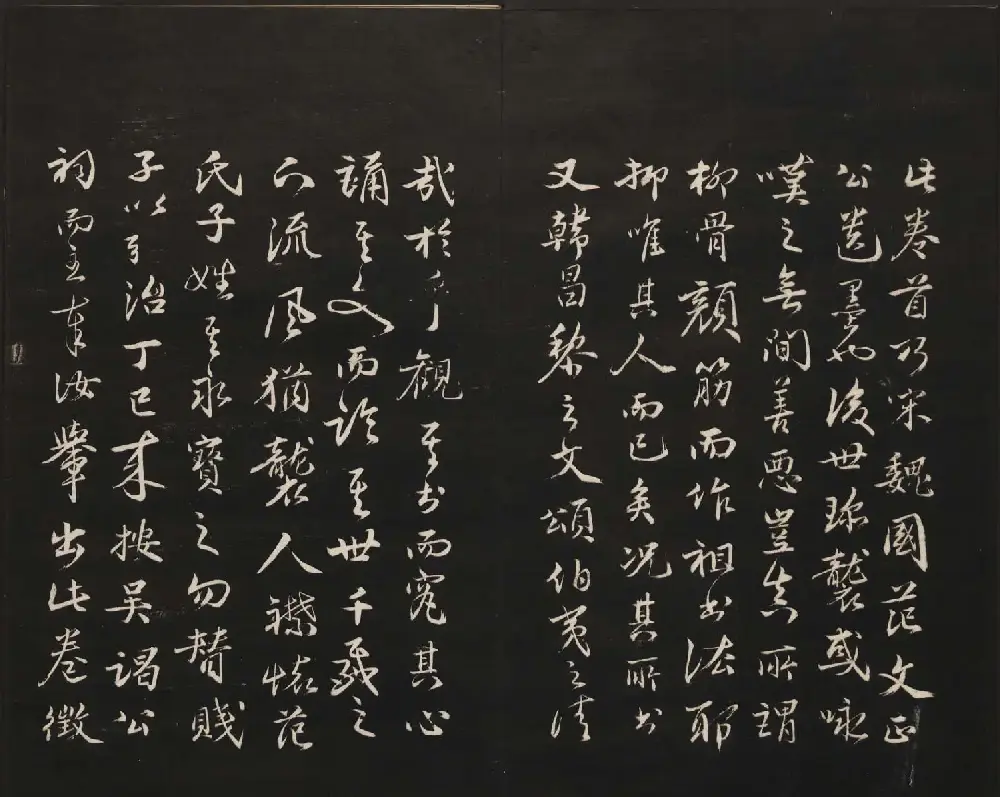 此卷首乃宋魏國范文正
公遺墨也後世珍襲或咏
嘆之無間善惡豈真所謂
柳骨顏筋而作祖書法耶
抑唯其人而已矣况其所書
又韓昌黎之文頌伯夷之清
哉於乎觀其書而窺其心
誦其文而論其世千載之
下流風猶襲人襟懷范
氏子姓其永寶之勿替賤
子以弘治丁巳來按吴謁公
祠而主奉汝輦出此卷徵